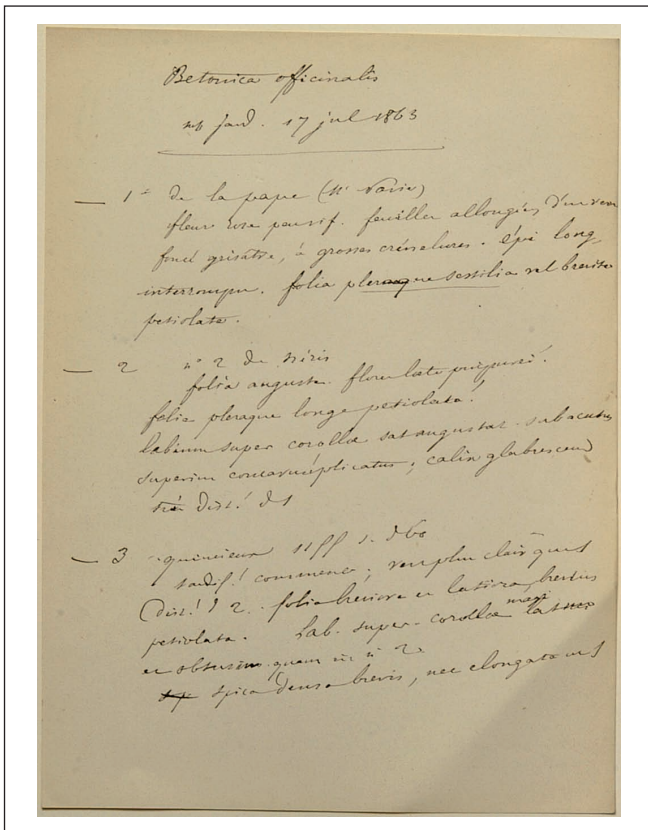 Betonica officinalis
jard. 17 jul 1863
— 1° De la pape
fleur rose feuilles allongées, d'un vert
foncé grisatre, à grosses crénelures. épi long,
interrompu. folia pleraque sessilia vel breviter
petiolata.
— 2 n° 2 de
folia angusta. flore late
folia pleraque longe petiolata!
labium super corollæ sat angustat. subacutus
superim calix glabrescens
dist!
— 3
commence; vert plus clair que
Dist! 2. folia breviora et latiora, brevius
petiolata. Lab. super. corollæ magi
et obtusum quam in n° 2
spica densa brevis, nec elongata